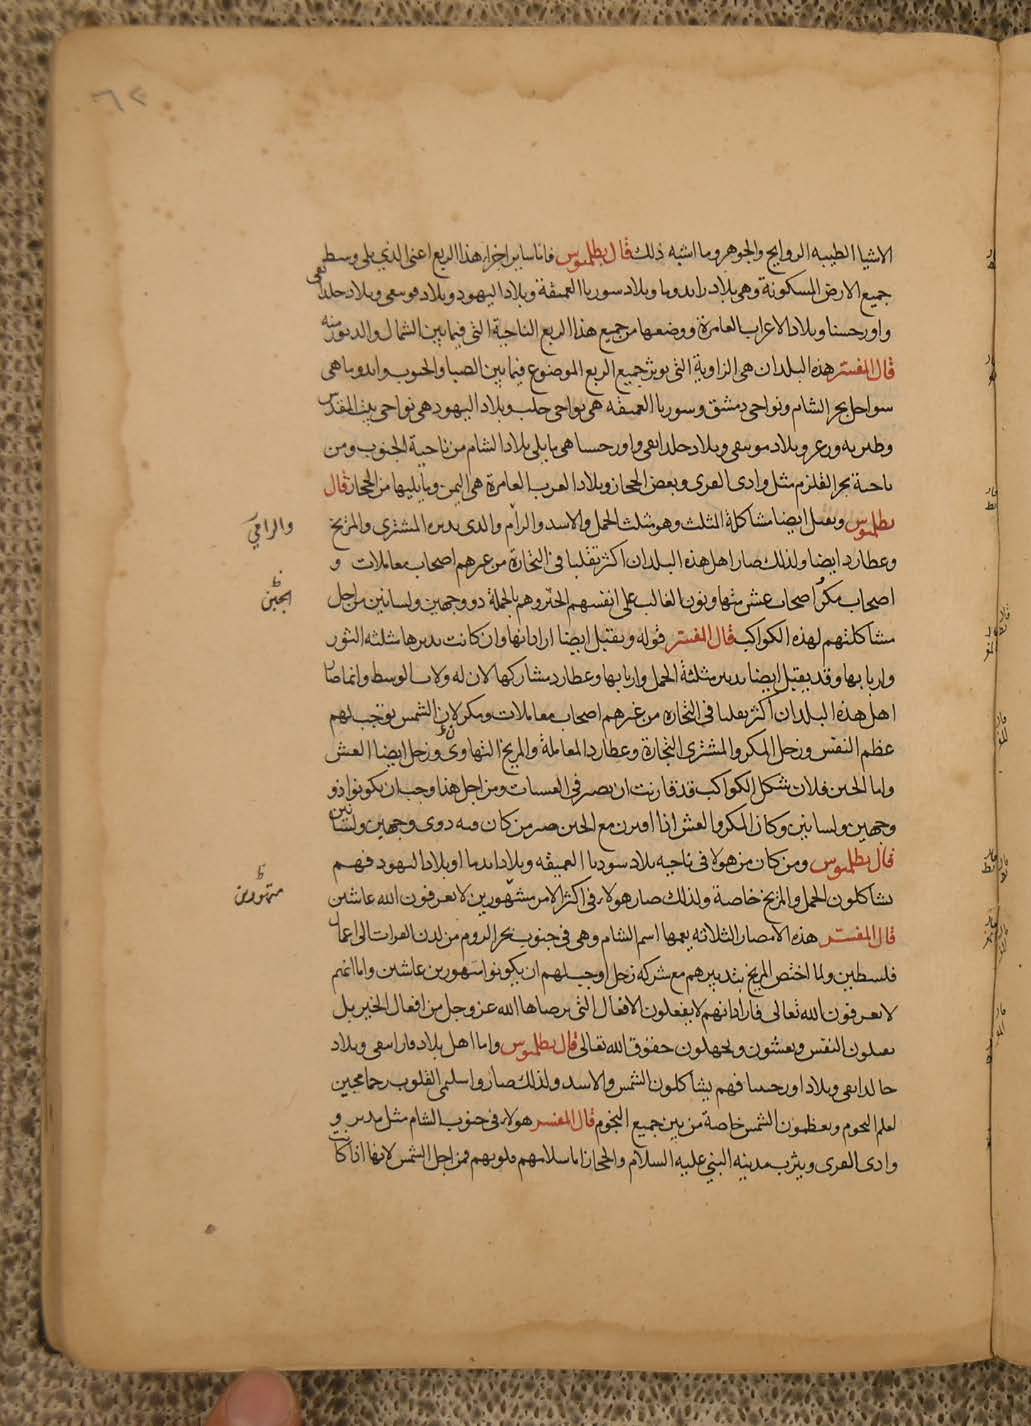 الاشيا الطيبه الروايح والجوهر وما اشبه ذلك قال بطلميوس فاما ساير اجزاء هذا الربع اعنى الذي يلى وسط
جميع الارض المسكونة وهى بلاد ايدوما وبلاد سوريا العميقة وبلاد اليهود وبلاد فوىىقى وبلاد حلدانقى
واورحسنا وبلاد الاعراب العامرة ووضعها من جميع هذا الربع الناحية التى فيما بين الشمال والدبور منه
قال المفسر هذه البلدان هى الزاوية التى من جميع الربع الموضوع فيما بين الصبا والجنوب وايدوما هى
سواحل بحر الشام ونواحى دمشق وسوريا العميقه هى نواحى حلب وبلاد اليهود هى نواحى بيت المقدس
وطبريه وزعر وبلاد وبلاد حلدانقى واورحسا هى ما يلى بلاد الشام من ناحية الجنوب ومن
ناحية بحر القلزم مثل وادى القرى وبعض الحجاز وبلاد العرب العامرة هى اليمن وما يليها من الحجاز قال
بطلميوس وىقبل ايضا مشاكلة المثلث وهو مثلث الحمل والاسد والرام والذى يدبره المشترى والمريخ
وعطارد ايضا ولذلك صار اهل هذه البلدان اكثر تقلبا فى التجارة من غيرهم اصحاب معاملات و
اصحاب مكر اصحاب غش متهاونون الغالب على انفسهم الخىر وهم بالجملة ذو وجهين ولسانين من اجل
مشاكلتهم لهذه الكواكب قال المفسر قوله وىقبل ايضا اراد انها وان كانت يدبرها مثلثه الثور
واربابها وقد يقبل ايضا تدبير مثلثة الحمل واربابها وعطارد مشاركها لان له ولايه الوسط وانما صار
اهل هذه البلدان اكثر تقلبا فى التجاره من غيرهم اصحاب معاملات ومكر لان الشمس توجب لهم
عظم النفس وزحل المكر والمشترى التجارة وعطارد المعاملة والمريخ التهاون وزحل ايضا الغش
واما الجبن فلان شكل الكواكب قد قارنت ان تصير فى العشيات ومن اجل هذا وجب ان يكونوا ذو
وجهين ولسانين وكان المكر والغش اذا اقترن مع الجبن صير من كان فيه ذوى وجهين ولسانين
قال بطلميوس ومن كان من هولا فى ناحيه بلاد سوريا العميقه وبلاد ايدما وبلاد اليهود فهم
يشاكلون الحمل والمريخ خاصة ولذلك صار هولاء فى اكثر الامر مشهورين لا يعرفون الله غاشين
قال المفسر هذه الامصار الثلاثه يعمها اسم الشام وهى فى جنوب بحر الروم من لدن الفرات الى اعمال
فلسطين ولما اختص المريخ بتدبيرهم مع شركه زحل اوجب لهم ان يكونوا متهورين غاشين واما انهم
لا يعرفون الله تعالى فاراد انهم لا يفعلون الافعال التى يرضاها الله عز وجل من افعال الخير بل
يقتلون النفس ويغشون ويجهلون حقوق الله تعالى قال بطلميوس واما اهل بلاد فاراىىقى وبلاد
حالدانقى وبلاد اورحسا فهم يشاكلون الشمس والاسد ولذلك صاروا سليمى القلوب رحما محبين
لعلم النجوم ويعظمون الشمس خاصة من بين جميع النجوم قال المفسر هولاء فى جنوب الشام مثل مدين و
وادى القرى ويثرب مدينه النبي عليه السلام والحجاز اما سلامهم قلوبهم فمن اجل الشمس لانها اذا كانت
الجبن
متهورين